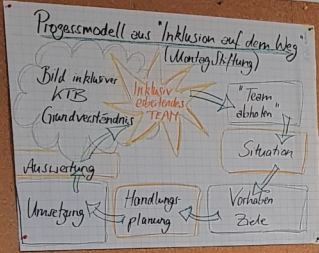 Prozessmodell aus "Inklusion auf dem Weg"
(Montag Stiftung)
Bild inklusives
KTB
Grundverständnis
Inklusiv
arbeitendes
TEAM
"Team
abholen"
Situation
Vorhaben
Ziele
Handlungs-
planung
Umsetzung
Auswertung